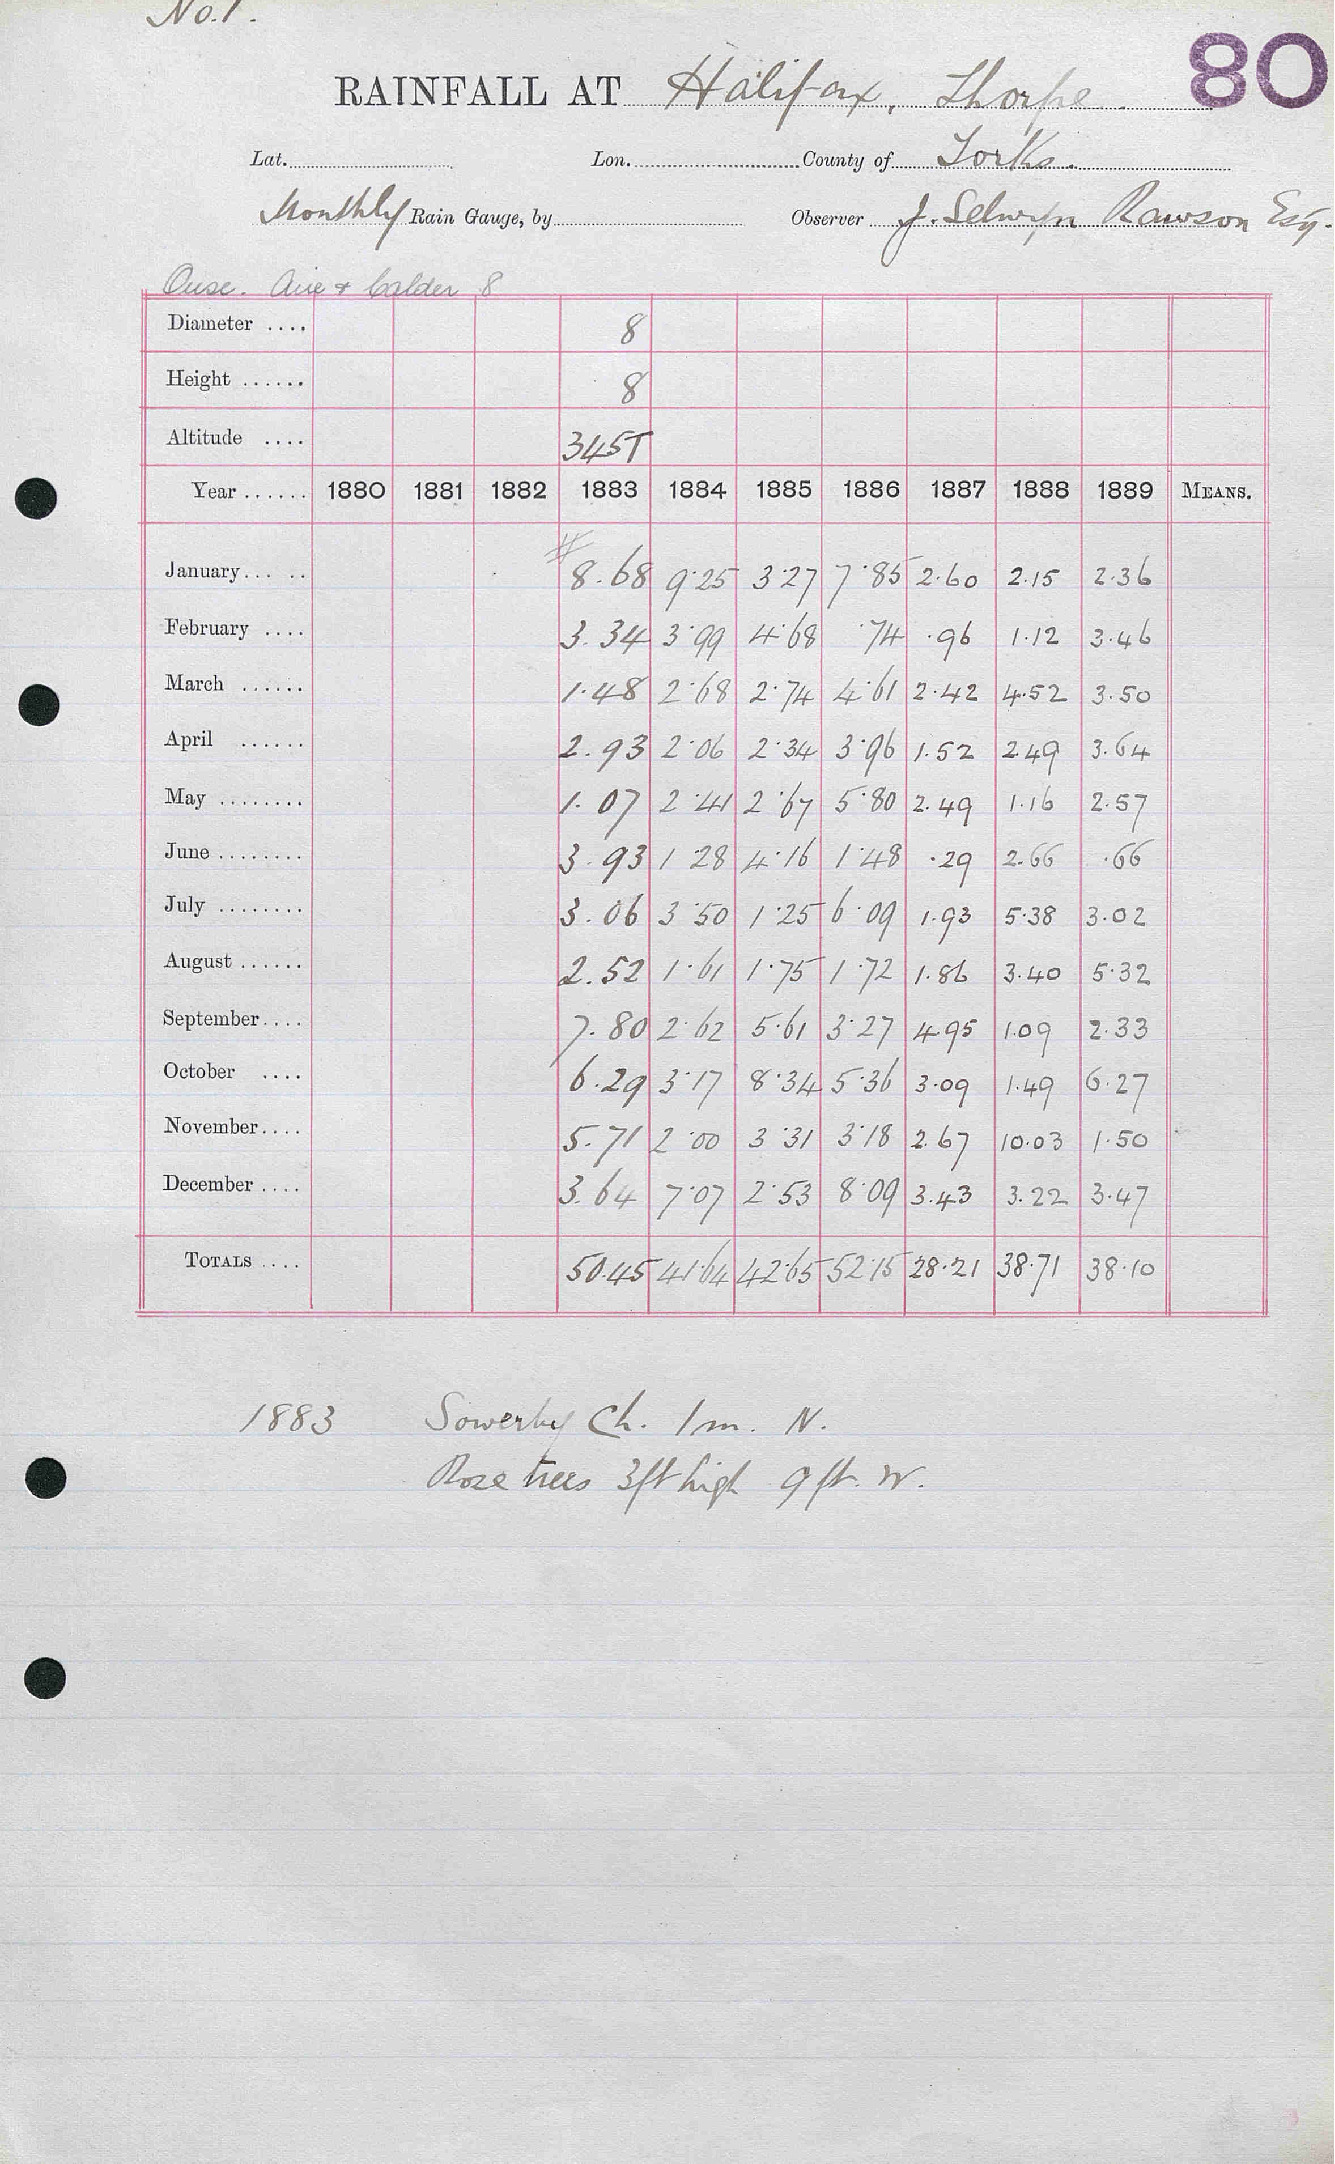 No. 1.
80
RAINFALL AT Halifax, Thorpe.
Lat. Lon. County of Yorks.
Monthly Rain Gauge, by Observer J. Selwyn Rawson Esq.
Ouse. Aire & Calder 8
Diameter .... 8
Height ...... 8
Altitude .... 345T
Year ...... 1880 1881 1882 1883 1884 1885 1886 1887 1888 1889 MEANS.
#
January... .. 8.68 9.25 3.27 7.85 2.60 2.15 2.36
February .... 3.34 3.99 4.68 .74 .96 1.12 3.46
March ...... 1.48 2.68 2.74 4.61 2.42 4.52 3.50
April ...... 2.93 2.06 2.34 3.96 1.52 2.49 3.64
May ........ 1.07 2.41 2.67 5.80 2.49 1.16 2.57
June ........ 3.93 1.28 4.16 1.48 .29 2.66 .66
July ........ 3.06 3.50 1.25 6.09 1.93 5.38 3.02
August ...... 2.52 1.61 1.75 1.72 1.86 3.40 5.32
September.... 7.80 2.62 5.61 3.27 4.95 1.09 2.33
October .... 6.29 3.17 8.34 5.36 3.09 1.49 6.27
November.... 5.71 2.00 3.31 3.18 2.67 10.03 1.50
December .... 3.64 7.07 2.53 8.09 3.43 3.22 3.47
TOTALS .... 50.45 41.64 42.65 52.15 28.21 38.71 38.10
1883 Sowerby Ch. 1 m. N.
Rose trees 3 ft high 9 ft. W.